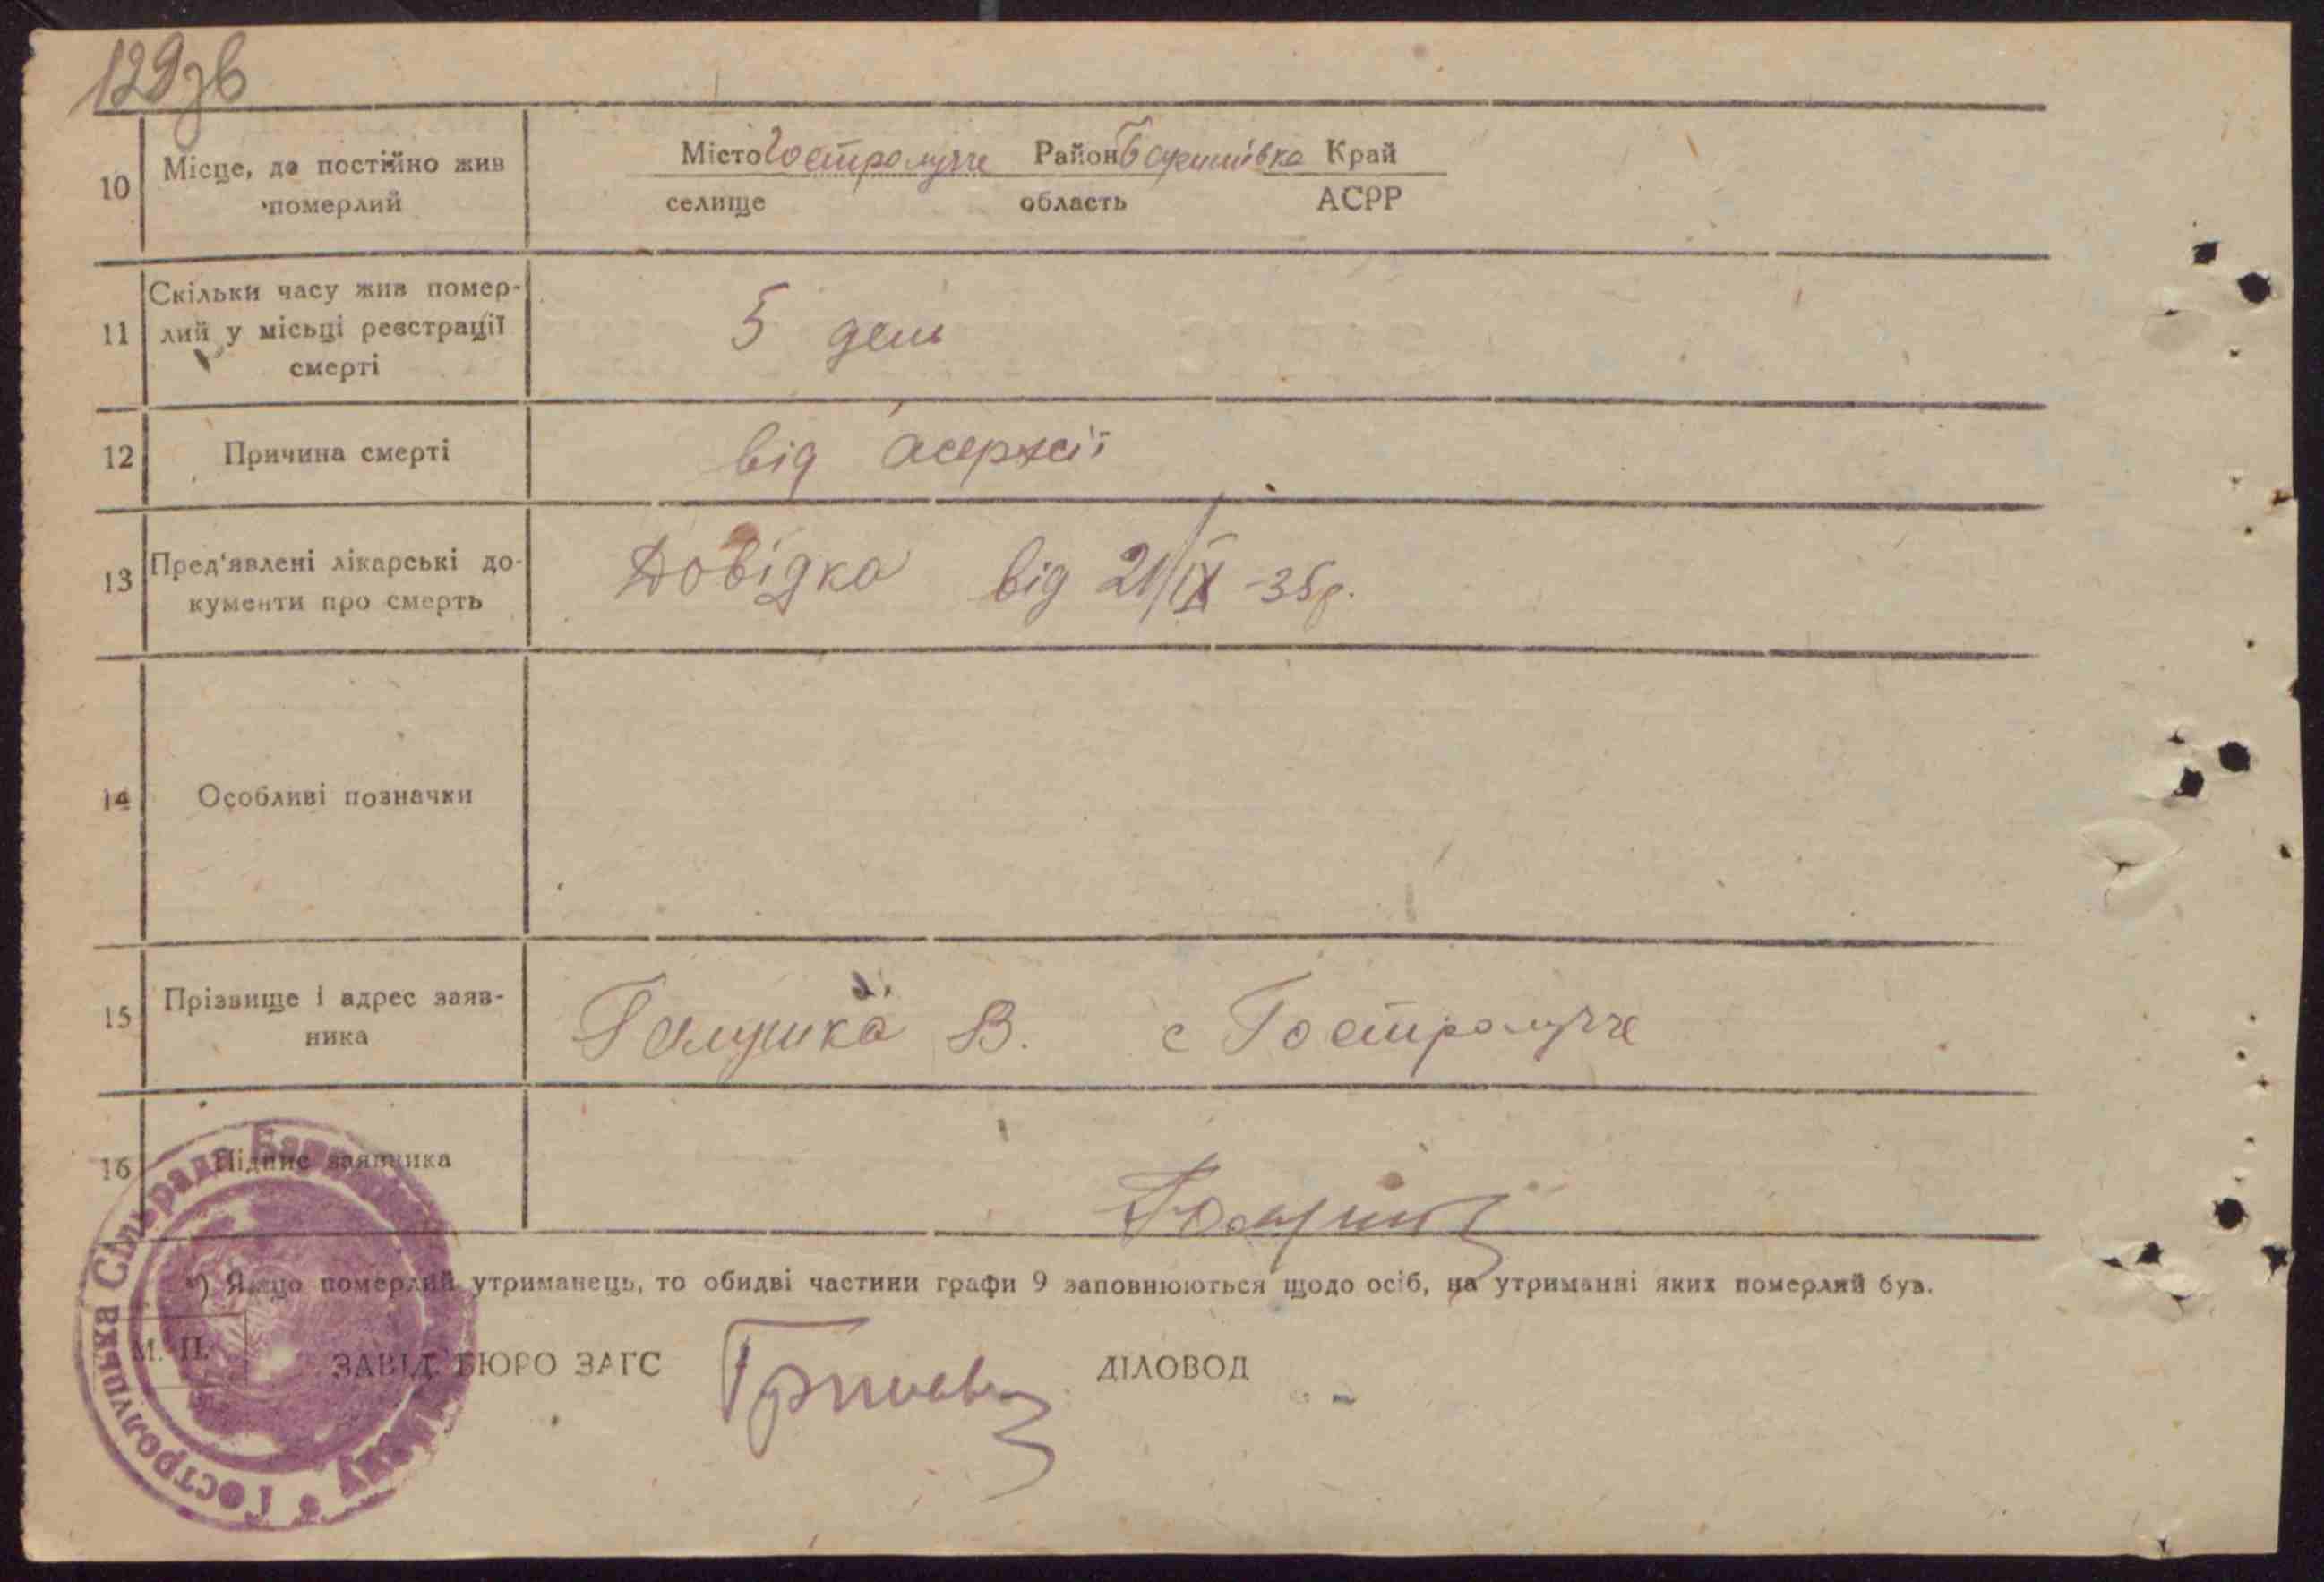 129зв
10 Місце, де постійно жив померлий
Місто Гостролучче Район Баришівка Край
селище область АСРР
11 Скільки часу жив помер-
лий у місьці реєстрації
смерті
5 день
12 Причина смерті
від
13 Пред'явлені лікарські до-
кументи про смерть
Довідка від 21/IX -35р.
14 Особливі позначки
15 Прізвище і адрес заяв-
ника
Галушка В. с Гостролучче
16 Підпис заявника
*) Якщо померлий утриманець, то обидві частини графи 9 заповнюються щодо осіб, на утриманні яких померлий був.
М. П.
ЗАВІД. БЮРО ЗАГС
ДІЛОВОД
Гостролуцька Сільрада